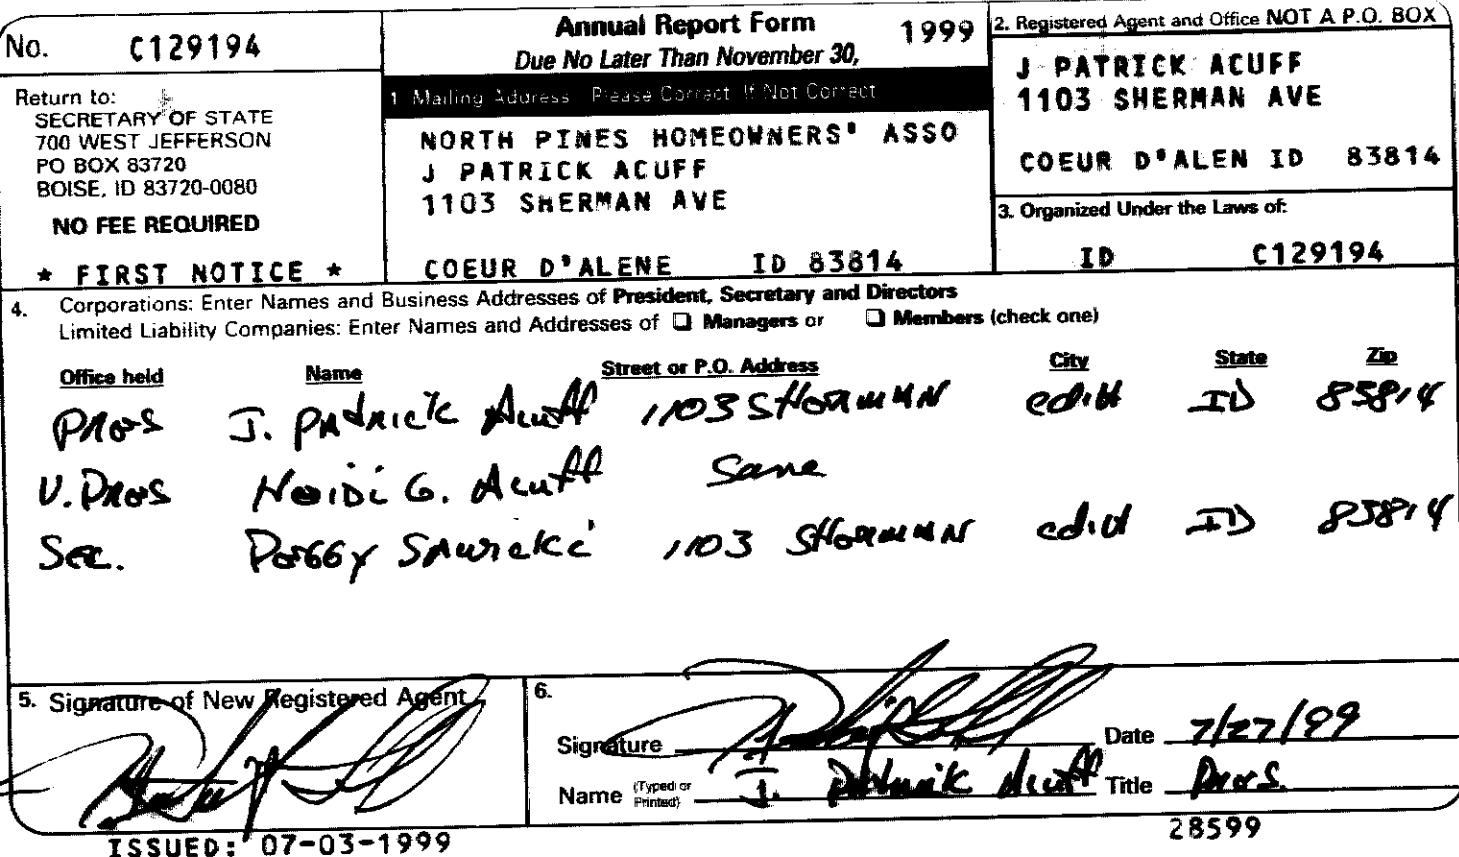 No. C129194
Return to:
SECRETARY OF STATE
700 WEST JEFFERSON
PO BOX 83720
BOISE, ID 83720-0080
NO FEE REQUIRED
* FIRST NOTICE *
Annual Report Form 1999
Due No Later Than November 30,
1 Mailing Address Please Correct If Not Correct
NORTH PINES HOMEOWNERS' ASSO
J PATRICK ACUFF
1103 SHERMAN AVE
COEUR D'ALENE ID 83814
2. Registered Agent and Office NOT A P.O. BOX
J PATRICK ACUFF
1103 SHERMAN AVE
COEUR D'ALEN ID 83814
3. Organized Under the Laws of:
ID C129194
4. Corporations: Enter Names and Business Addresses of President, Secretary and Directors
Limited Liability Companies: Enter Names and Addresses of ❑ Managers or ❑ Members (check one)
Office held Name Street or P.O. Address City State Zip
Pres J. Patrick Acuff 1103 Sherman ID 83814
V. Pres Heidi G. Acuff Same
Sec. Peggy 1103 Sherman ID 83814
5. Signature of New Registered Agent
6.
Signature Date 7/27/99
Name (Typed or Printed) J. Patrick Acuff Title Pres.
ISSUED: 07-03-1999
28599